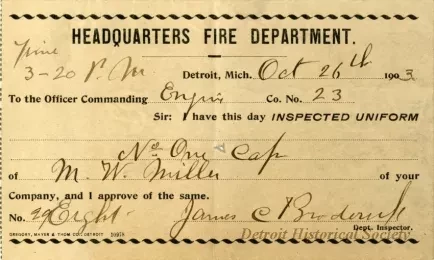 HEADQUARTERS FIRE DEPARTMENT.
Time
3-20 P.M. Detroit, Mich. Oct 26th 1903
To the Officer Commanding Engine Co. No. 23
Sir: I have this day INSPECTED UNIFORM
No One Cap
of M. W. Miller of your
Company, and I approve of the same.
No. Eight James C Broderick
Dept. Inspector.
GREGORY, MAYER & THOM CO., DETROIT
Detroit Historical Society